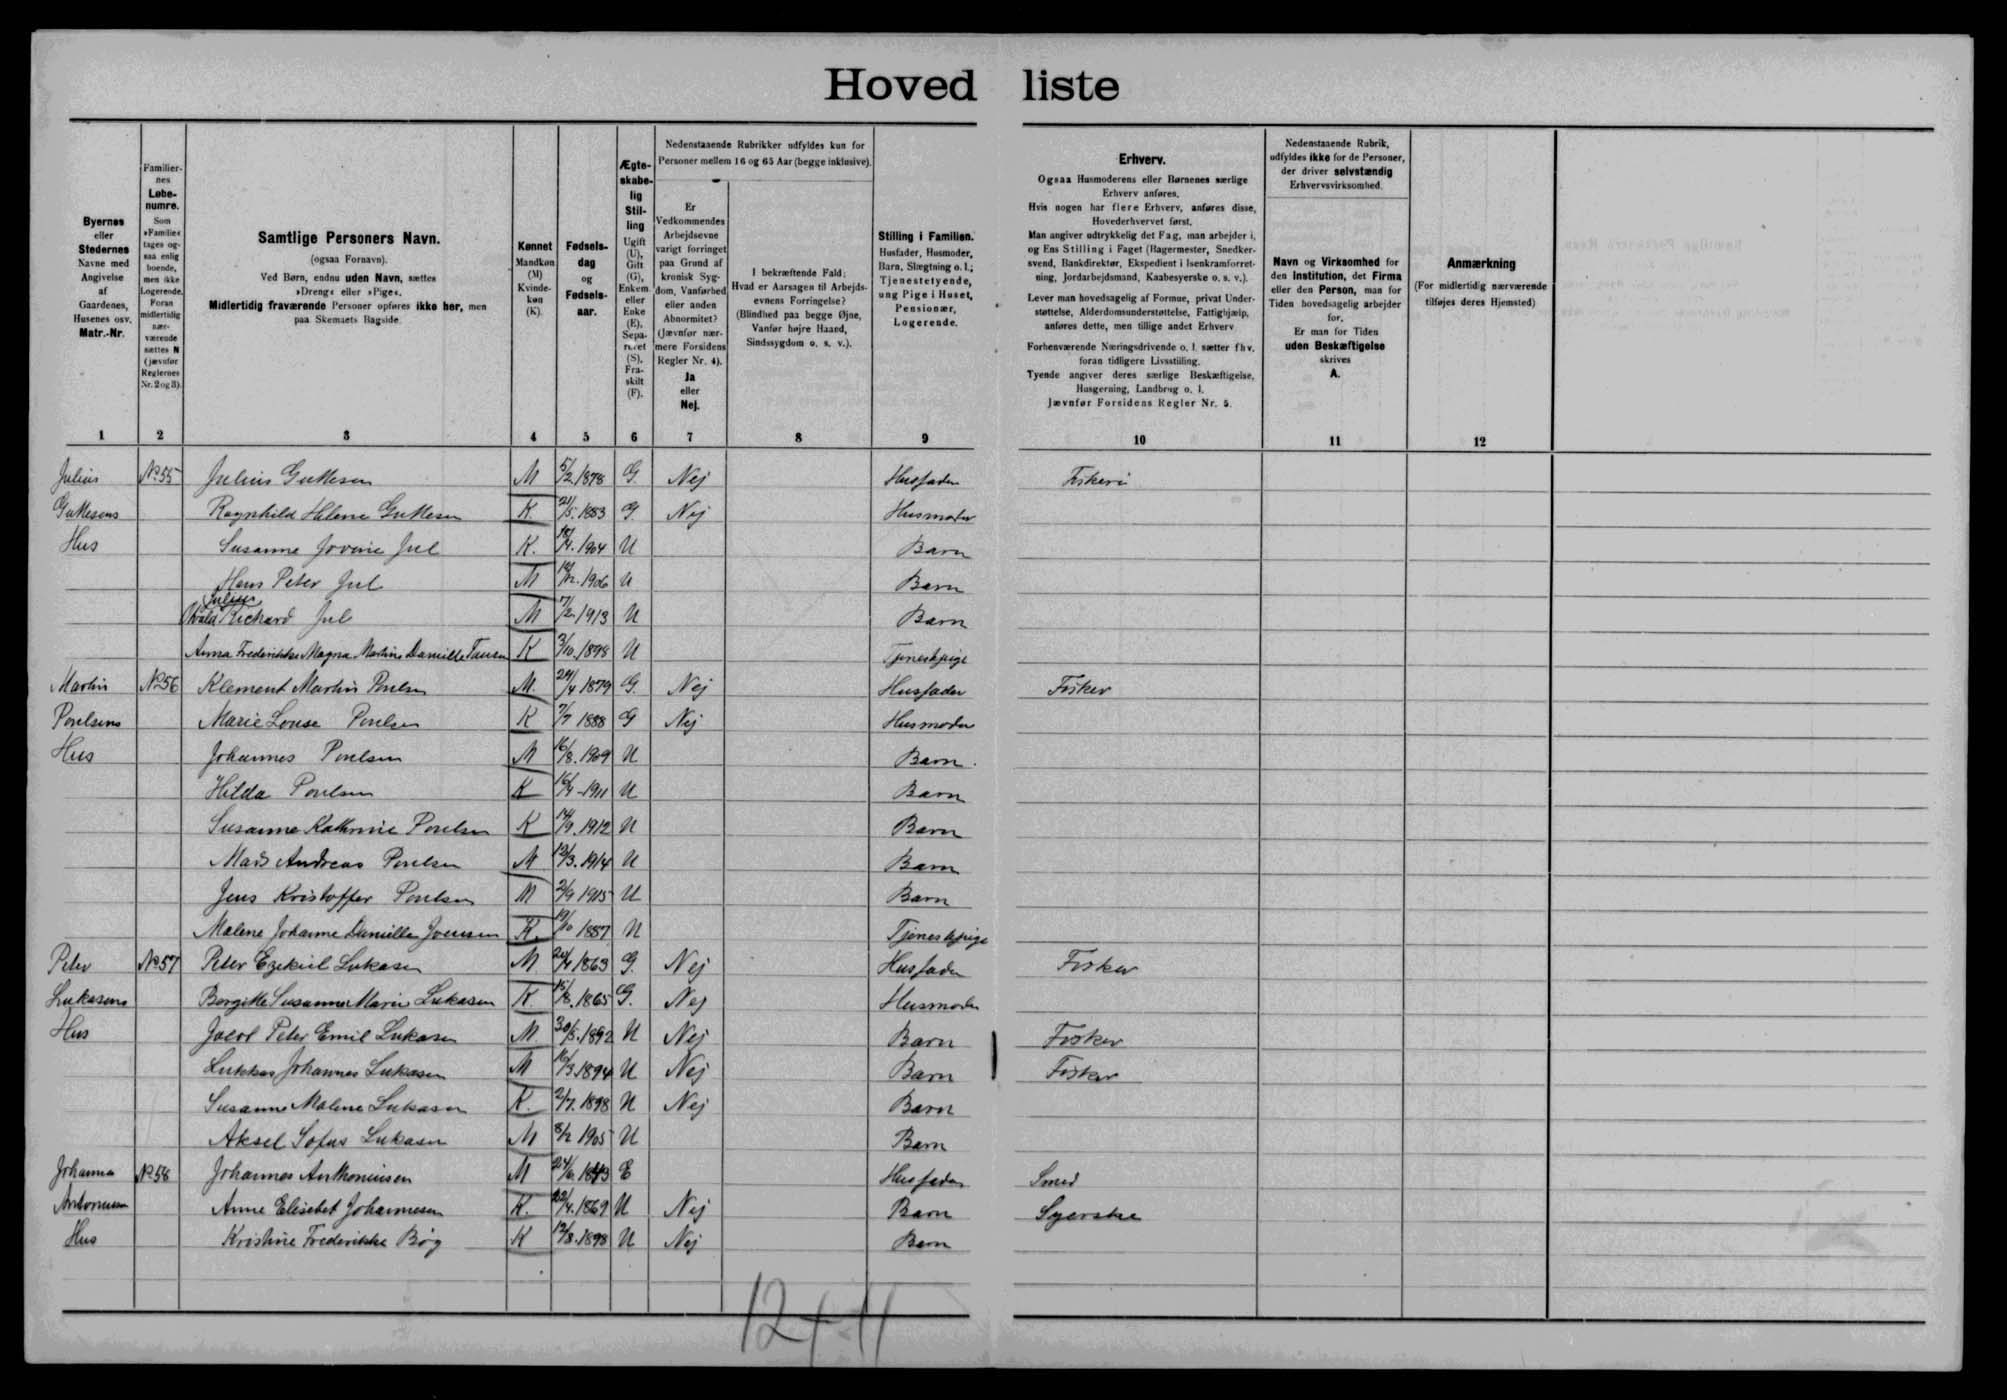 Hovedliste
Byernes eller Stedernes Navne med Angivelse af Gaardenes, Husenes osv. Matr.-Nr.
Familiernes Løbenumre. Som »Familie« tages ogsaa enlig boende, men ikke Logerende. Foran midlertidig nærværende sættes N (jævnfør Reglernes Nr. 2 og 3).
Samtlige Personers Navn.
(ogsaa Fornavn).
Ved Børn, endnu uden Navn, sættes
»Dreng« eller »Pige«.
Midlertidig fraværende Personer opføres ikke her, men
paa Skemaets Bagside.
Kønnet Mandkøn (M) Kvindekøn (K).
Fødselsdag og Fødselsaar.
Ægteskabelig Stilling Ugift (U), Gift (G), Enkem. eller Enke (E), Separeret (S), Fraskilt (F).
Nedenstaaende Rubrikker udfyldes kun for
Personer mellem 16 og 65 Aar (begge inklusive).
Er Vedkommendes Arbejdsevne varigt forringet paa Grund af kronisk Sygdom, Vanførhed eller anden Abnormitet? (Jævnfør nærmere Forsidens Regler Nr. 4). Ja eller Nej.
I bekræftende Fald: Hvad er Aarsagen til Arbejdsevnens Forringelse? (Blindhed paa begge Øjne, Vanfør højre Haand, Sindssygdom o. s. v.).
Stilling i Familien. Husfader, Husmoder, Barn, Slægtning o. l.; Tjenestetyende, ung Pige i Huset, Pensionær, Logerende.
Erhverv.
Ogsaa Husmoderens eller Børnenes særlige
Erhverv anføres.
Hvis nogen har flere Erhverv, anføres disse,
Hovederhvervet først.
Man angiver udtrykkelig det Fag, man arbejder i,
og Ens Stilling i Faget (Bagermester, Snedkersvend, Bankdirektør, Ekspedient i Isenkramforretning, Jordarbejdsmand, Kaabesyerske o. s. v.).
Lever man hovedsagelig af Formue, privat Understøttelse, Alderdomsunderstøttelse, Fattighjælp,
anføres dette, men tillige andet Erhverv
Forhenværende Næringsdrivende o. l. sætter fhv.
foran tidligere Livsstilling.
Tyende angiver deres særlige Beskæftigelse,
Husgerning, Landbrug o. l.
Jævnfør Forsidens Regler Nr. 5.
Nedenstaaende Rubrik, udfyldes ikke for de Personer, der driver selvstændig Erhvervsvirksomhed.
Navn og Virksomhed for den Institution, det Firma eller den Person, man for Tiden hovedsagelig arbejder for.
Er man for Tiden uden Beskæftigelse skrives A.
Anmærkning
(For midlertidig nærværende
tilføjes deres Hjemsted)
1 2 3 4 5 6 7 8 9 10 11 12
Julius No 55 Julius Guttesen M 5/2 1878 G. Nej Husfader Fiskeri
Guttesens Ragnhild Helene Guttesen K. 21/5. 1883 G. Nej Husmoder
Hus Susanne Jovine Jul K. 18/4. 1904 U Barn
Hans Peter Jul M 1906 U Barn
Julius
Richard Jul M 7/2 1913 U Barn
Anna Frederikke Magna Martine Danielle K 3/10. 1898 U Tjenestpige
Martin No 56 Klement Martin Poulsen M. 24/4 1879 G. Nej Husfader Fisker
Poulsens Marie Louse Poulsen K 7/7 1888 G Nej Husmoder
Hus Johannes Poulsen M 16/8. 1909 U Barn.
Hilda Poulsen K 16/4 - 1911 U Barn
Susanne Kathrine Poulsen K 14/9. 1912 U Barn
Mads Andreas Poulsen M 13/3. 1914 U Barn
Jens Kristoffer Poulsen M 2/9 1915 U Barn
Malene Johanne Danielle Joensen K. 19/10 1887 U Tjenestpige
Peter No 57 Peter Ezekiel Lukasen M 20/4 1863 G. Nej Husfader Fisker
Lukasens Borgitte Susanne Marie Lukasen K. 15/8. 1865 G. Nej Husmoder
Hus Jacob Peter Emil Lukasen M 30/5. 1892 U Nej Barn Fisker
Lukkas Johannes Lukasen M 16/3 1894 U Nej Barn Fisker
Susanne Malene Lukasen K. 2/7. 1898 U Nej Barn
Aksel Sofus Lukasen M 8/2 1905 U Barn
Johannes No 58 Johannes Anthoniusen M 24/6 1843 E Husfader Smed
Anne Elisebet Johannesen K. 22/4. 1869 U Nej Barn Syerske
Hus Kristine Frederikke Bøg K 12/8. 1898 U Nej Barn
12 + 11